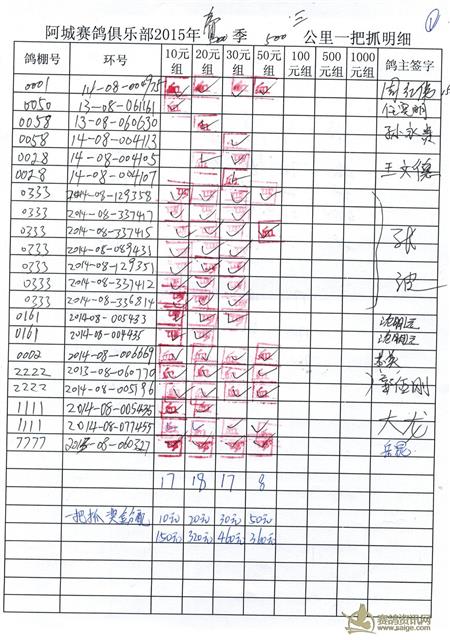 ①
阿城赛鸽俱乐部2015年 季 500 三 公里一把抓明细
鸽棚号 环号 10元组 20元组 30元组 50元组 100元组 500元组 1000元组 鸽主签字
0001
0050 13-08-061161
0058 13-08-060630
0058 14-08-004113
0028 14-08-004105 王文德
0028 14-08-004107
0333 2014-08-129358
0333 2014-08-337417
0333 2014-08-337415 张
0333 2014-08-089433
0333 波
0333 2014-08-337412
0333 2014-08-336814
0161 2014-08-005433
0161 2014-08-004435
0002 2014-08-006069
2222 2013-08-060770
2222 2014-08-005196
1111 2014-08-005435
1111 2014-08-077455 大龙
7777 2013-08-060327
17 18 17 8
一把抓 奖金分配 10元 20元 30元 50元
150元 320元 460元 360元
赛鸽资讯网
www.saige.com